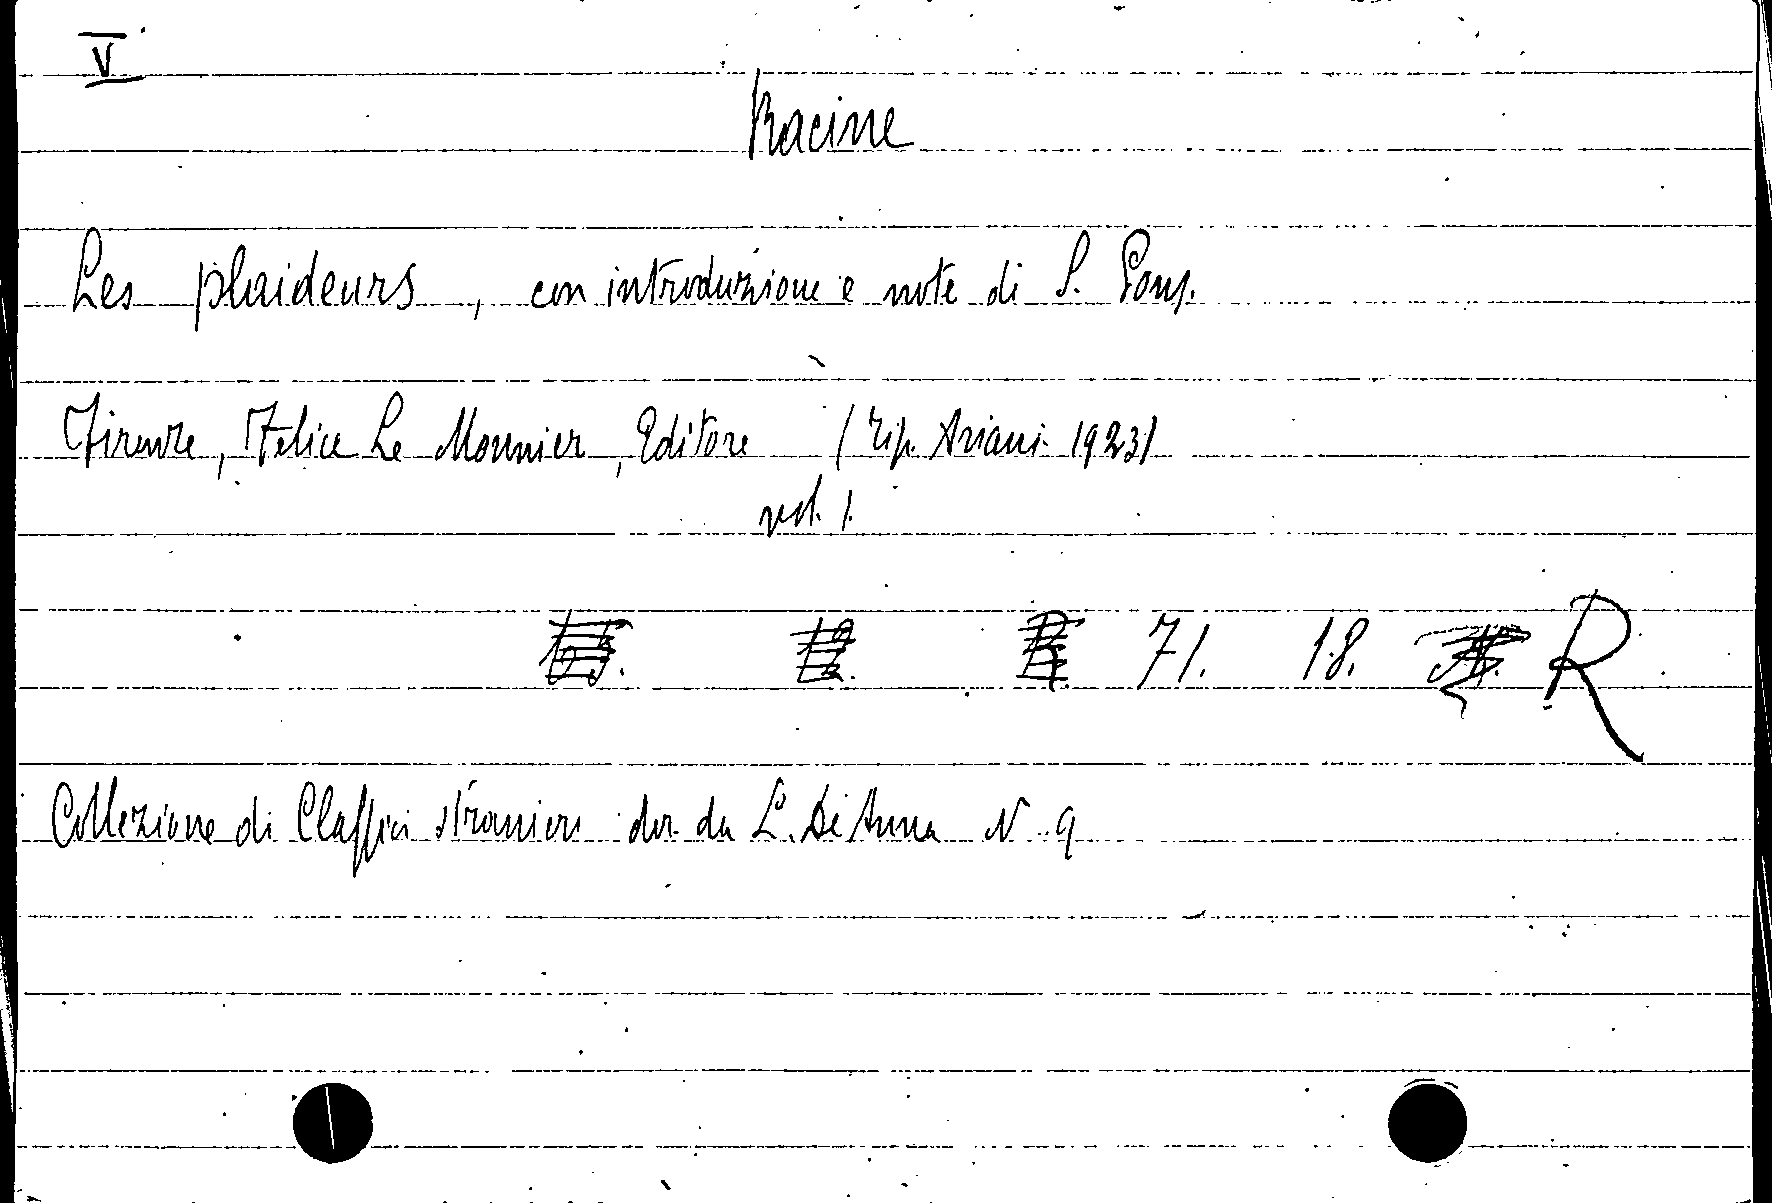 V
Racine
Les plaideurs, con introduzione e note di S. Pons.
Firenze, Felice Le Monnier, Editore (Tip. Ariani 1923)
vol. 1.
71. 18. R
Collezione di Classici stranieri dir. da L. De Anna N 9